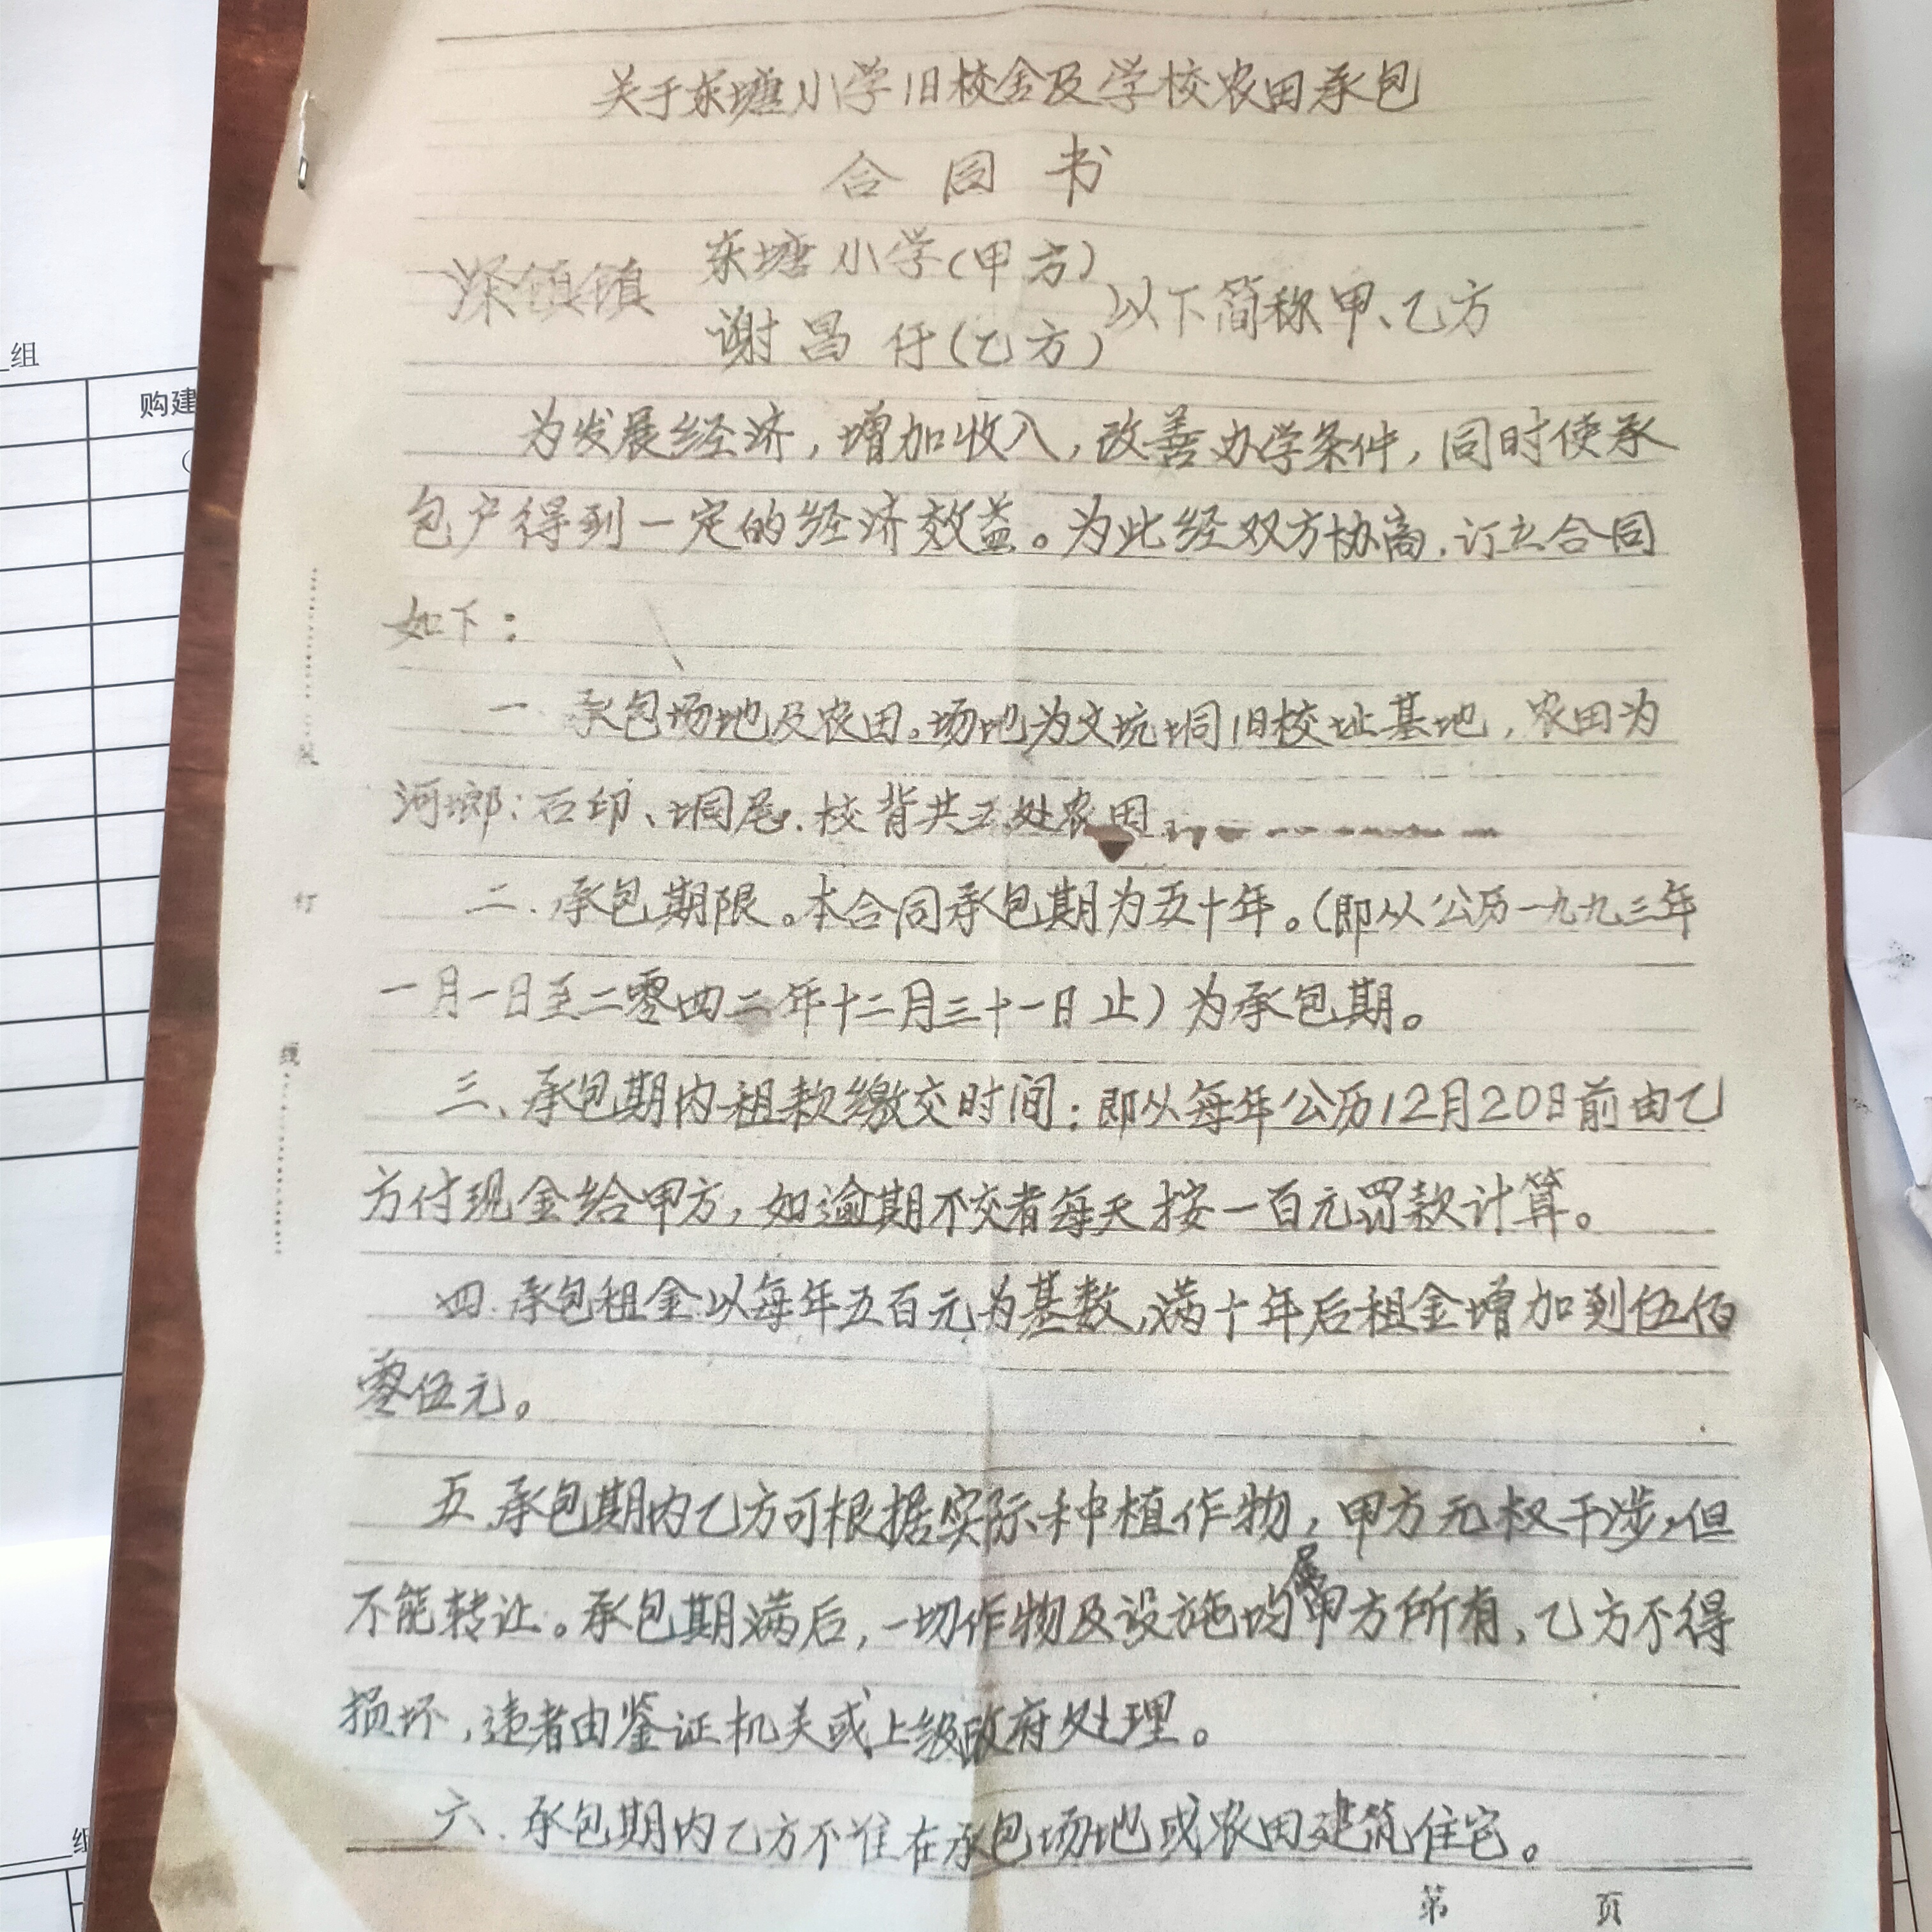 关于东塘小学旧校舍及学校农田承包
合同书
深镇镇
东塘小学(甲方)
谢昌仔(乙方)
以下简称甲、乙方
为发展经济,增加收入,改善办学条件,同时使承
包户得到一定的经济效益。为此经双方协商,订立合同
如下:
一 承包场地及农田。场地为文坑垌旧校址基地,农田为
河塱:石印、垌尾、校背共五处农田
二.承包期限。本合同承包期为五十年。(即从公历一九九三年
一月一日至二零四二年十二月三十一日止)为承包期。
三、承包期内租款缴交时间:即从每年公历12月20日前由乙
方付现金给甲方,如逾期不交者每天按一百元罚款计算。
四.承包租金以每年五百元为基数,满十年后租金增加到伍佰
零伍元。
五.承包期内乙方可根据实际种植作物,甲方无权干涉,但
不能转让。承包期满后,一切作物及设施均属甲方所有,乙方不得
损坏,违者由鉴证机关或上级政府处理。
六.承包期内乙方不准在承包场地或农田建筑住宅。
第 页
装
订
线
组
购建
组